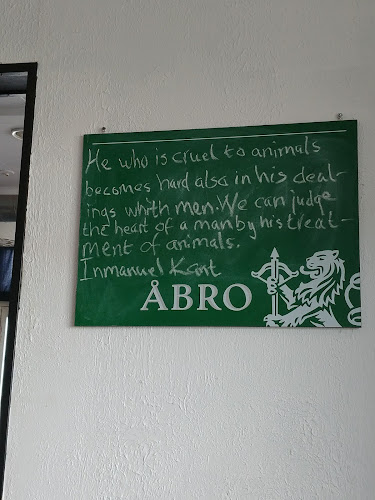 He who is cruel to animals
becomes hard also in his deal-
ings whith men. We can judge
the heart of a man by his treat-
ment of animals.
Inmanuel Kant
ÅBRO